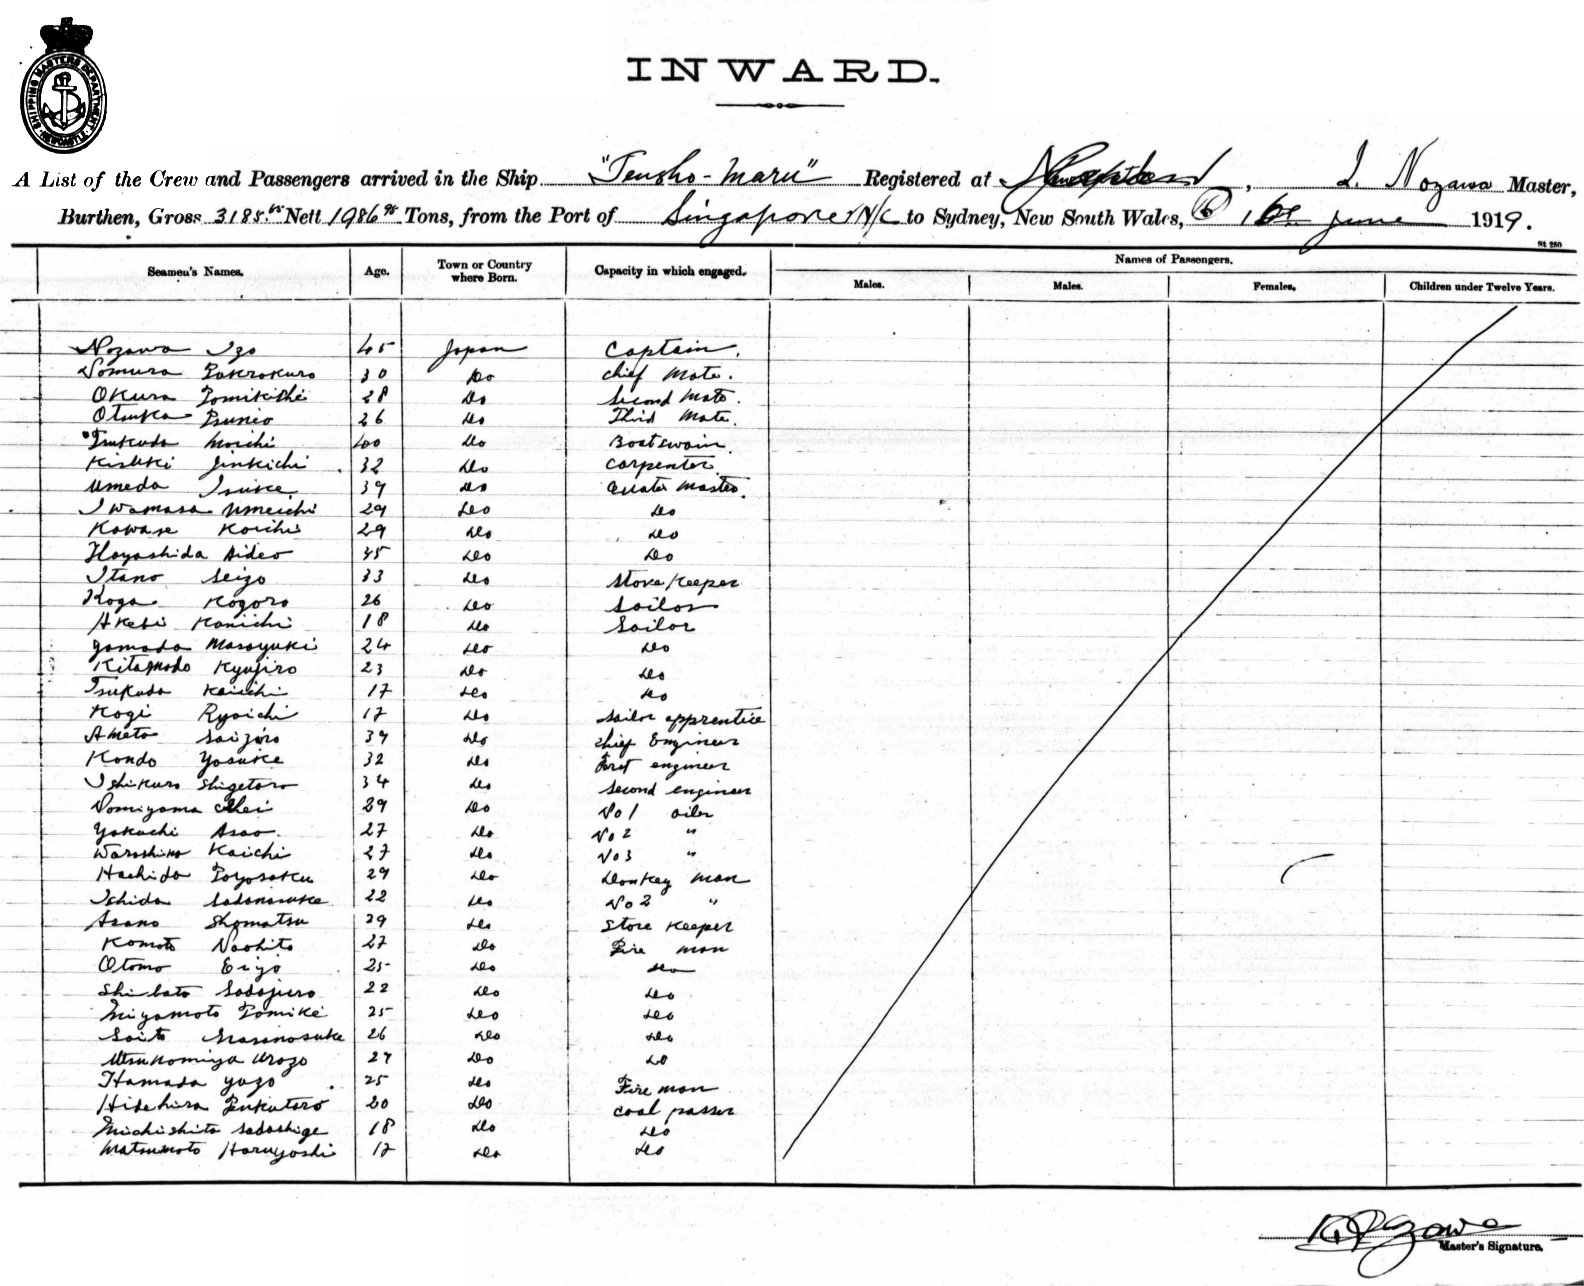 SHIPPING MASTERS DEPARTMENT
NEWCASTLE
INWARD.
A List of the Crew and Passengers arrived in the Ship "Tensho-Maru" Registered at I. Nozawa Master,
Burthen, Gross 3185 Nett 1986 Tons, from the Port of Singapore N/C to Sydney, New South Wales, June 1919.
St 250
Seamen's Names. Age. Town or Country where Born. Capacity in which engaged. Names of Passengers.
Males. Males. Females. Children under Twelve Years.
Nozawa Izo 45 Japan Captain.
30 Do Chief Mate.
Okura Tomikichi 28 Do Second Mate.
Otsuka Tsuneo 26 Do Third Mate.
Tsukuda Moichi 40 Do Boatswain.
Kishiki Jinkichi 32 Do Carpenter.
Umeda Isuke 39 Do Quater Master.
Iwamasa Umeichi 29 Do Do
Kawase Koichi 29 Do Do
Hayashida Hideo 35 Do Do
Itano Seizo 33 Do Store Keeper
Koga Kogoro 26 Do Sailor
Akebi Kanichi 18 Do Sailor
Yamada Masayuki 24 Do Do
Kitamodo Kyujiro 23 Do Do
Tsukuda Kaiichi 17 Do Do
Kogi Ryoichi 17 Do Sailor apprentice
Ameto Saizoro 39 Do Chief Engineer
Kondo Yosuke 32 Do First engineer
Ishikuro Shigetaro 34 Do Second engineer
Tomiyama 29 Do No 1 oiler
Yokochi Asao. 27 Do No 2 "
Waroshino Kaichi 27 Do No 3 "
Hachida Toyosaku 29 Do Donkey man
Ishida Sadanosuke 22 Do No 2 "
Asano Shomatsu 29 Do Store Keeper
Komoto Naohito 27 Do Fire man
Otomo Eijo 25 Do Do
Shibato Sadajuro 22 Do Do
Miyamoto Tomike 25 Do Do
Saito Masanosuke 26 Do Do
Utsunomiya Urozo 27 Do Do
Hamada Yozo 25 Do Fire man
Hidehira Fukutaro 20 Do Coal passer
Michishita Sadashige 18 Do Do
Matsumoto Haruyoshi 17 Do Do
Master's Signature.